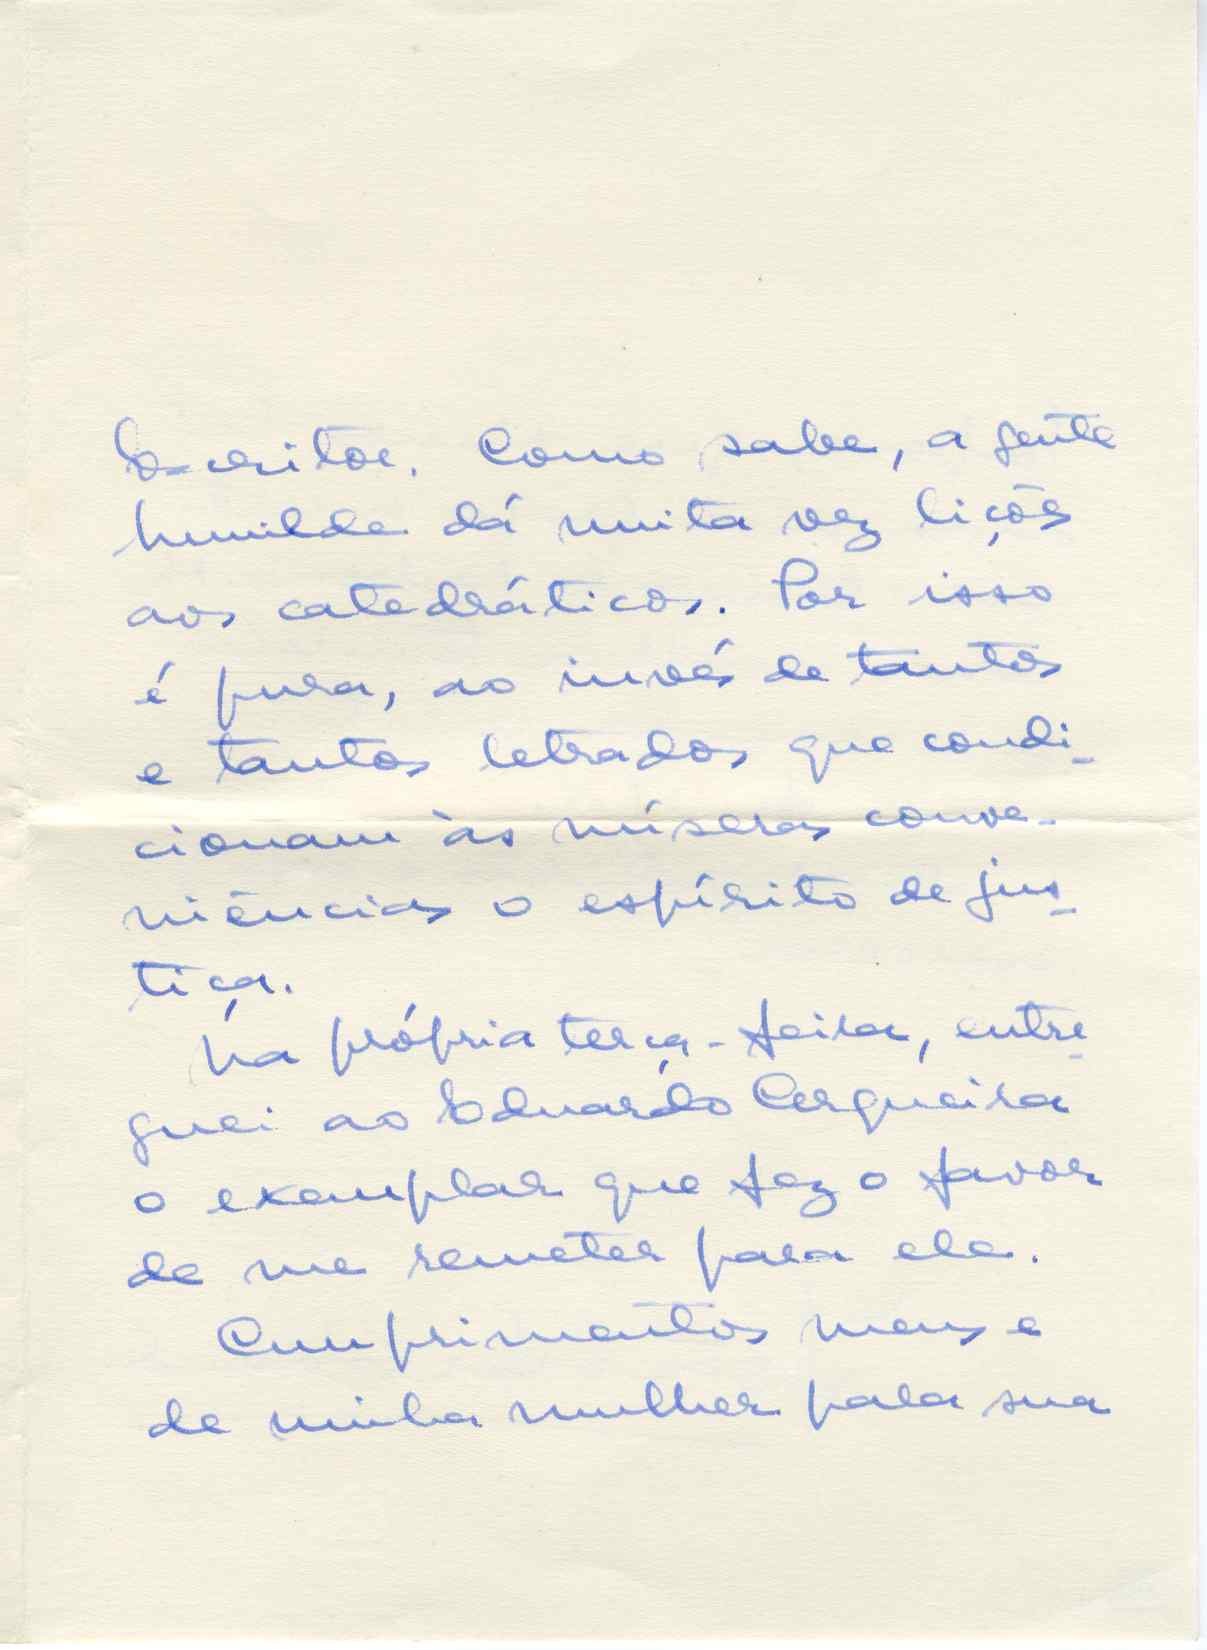 Escritor. Como sabe, a gente
humilde dá muita vez lições
aos catedráticos. Por isso
é pura, ao invés de tantos
e tantos letrados que condi-
cionam às míseras conve-
niências o espírito de jus-
tiça.
Na própria terça-feira, entre-
guei ao Eduardo Cerqueira
o exemplar que fez o favor
de me remeter para ele.
Cumprimentos meus e
de minha mulher para sua